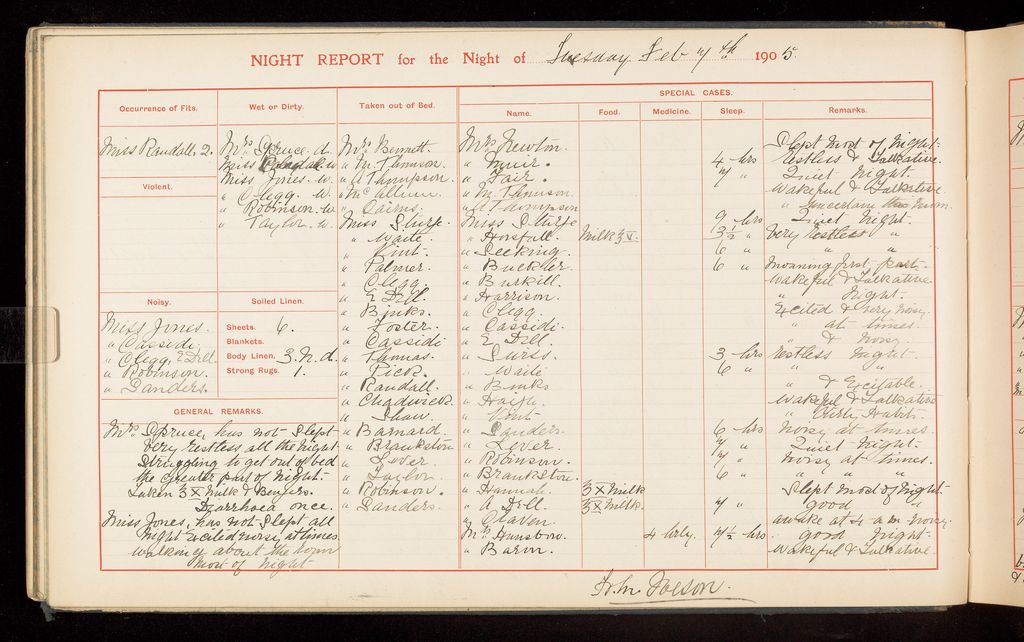 NIGHT REPORT for the Night of Tuesday Feb 7th 1905
SPECIAL CASES.
Occurrence of Fits.
Wet or Dirty.
Taken out of Bed.
Name.
Food.
Medicine.
Sleep.
Remarks.
Miss Randall. 2.
Violent.
Noisy.
Miss Jones.
" Cassidi
" Clegg, E Dell
" Robinson.
" Sanders.
Mrs Spruce. d.
Miss w
Miss Jones. w.
" Clegg. w.
" Robinson. w.
" Taylor. w
Soiled Linen.
Sheets. 6.
Blankets.
Body Linen. 3. n. d.
Strong Rugs. 1.
GENERAL REMARKS.
Mrs Spruce, has not Slept
Very restless all the night
Struggling to get out of bed
the greater part of Night.
Taken ʒ X Milk & Bengers.
Diarrhoea once.
Miss Jones, has not Slept all
Night Excited noisy at times
walking about the room
most of night
Mrs Burnett
" M. Thomson.
" A Thompson.
" McCallum.
" Cairns.
Miss Sturge
" Waite.
" Vint.
" Palmer.
" Clegg.
" E Dell.
" Binks.
" Foster.
" Cassidi
" Thomas.
" Pick.
" Randall.
" Chadwick.
" Shaw
" Barnard.
" Brankston
" Lever.
" Taylor
" Robinson.
" Sanders.
Mrs Newton
" Muir.
" Fair.
" M. Thomson
" A Thompson
Miss Sturge
" Horsfall.
" Seeking.
" Buckler
" Burkill.
" Harrison.
" Clegg.
" Cassidi
" E Dell.
" Suris.
" Waite
" Binks
" Haigh
" Vint
" Sanders
" Lever.
" Robinson.
" Brankston.
" Hannah.
" A. Dell.
" Craven.
Mrs
" Barm.
Milk ʒ V.
ʒ X Milk
ʒ X Milk.
4 hrly.
4 hrs
7 "
9 hrs
3½ "
6 "
6 "
3 hrs
6 "
6 hrs
7 "
7 "
6 "
7 "
7½ hrs
Slept most of Night.
restless & Talkative.
Quiet Night.
Wakeful & Talkative
Quiet Night.
Very restless "
" "
Moaning first part.
Wakeful & Talkative.
" Night.
Excited & very noisy.
" at times.
" & Noisy.
restless night.
" "
" & Excitable.
Wakeful & Talkative
" Habit.
Noisy at times.
Quiet Night.
Noisy at times.
" "
Slept most of Night.
" good "
awake at 4 a m noisy
good Night.
Wakeful & Talkative